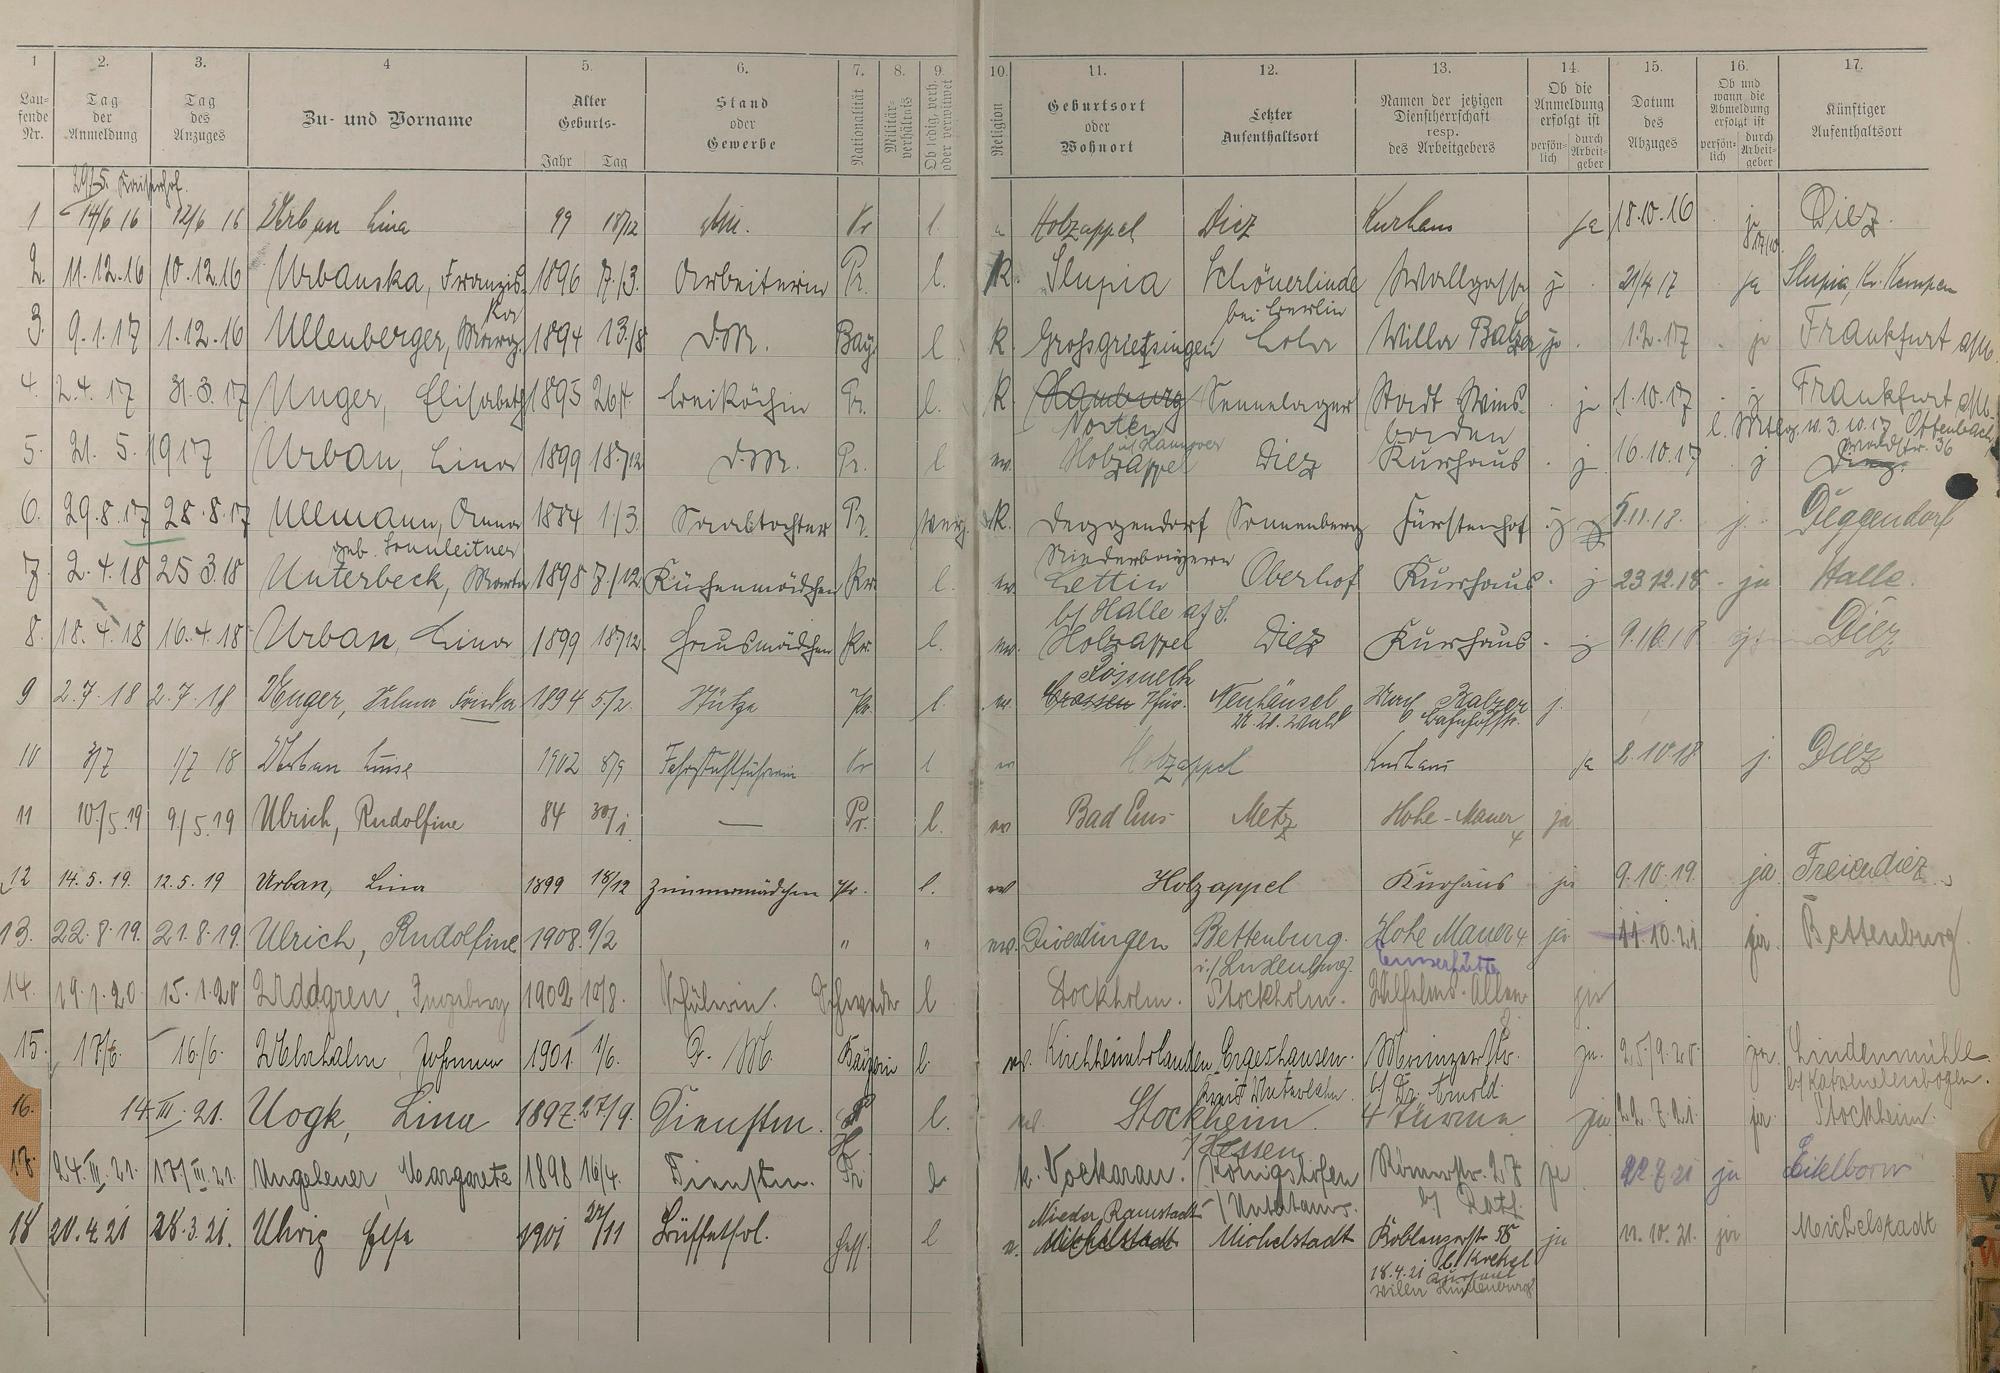 1 2. 3. 4 5. 6. 7. 8. 9. 10. 11. 12. 13. 14 15. 16. 17.
Lau-fende Nr. Tag der Anmeldung Tag des Anzuges Zu- und Vorname Alter Geburts- Jahr Tag Stand oder Gewerbe Nationalität Militär-verhältnis Ob ledig, verh. oder verwitwet Religion Geburtsort oder Wohnort Letzter Aufenthaltsort Namen der jetzigen Dienstherrschaft resp. des Arbeitgebers Ob die Anmeldung erfolgt ist persön-lich durch Arbeit-geber Datum des Abzuges Ob und wann die Abmeldung erfolgt ist persön-lich durch Arbeit-geber Künftiger Aufenthaltsort
29/5. Kaiserhof.
1 14/6 16 12/6 16 Urban Lina 99 18/12 Pr l. Holzappel Diez Kurhaus ja 18.10.16 Diez.
17/10.
2. 11.12.16 10.12.16 Urbanska, Franzis 1896 7./3. Arbeiterin Pr. l. K. Slupia Schönerlinde Wallgasse j 21/4 17 ja Slupia, Kr. Kempen
ka bei Berlin
3. 9.1.17 1.12.16 Ullenberger, Marg. 1894 13/8 D.M. Bay. l. K. Villa Balzer j. 1.2.17 j Frankfurt a/M.
4. 2.4.17 31.3.17 Unger, Elisabeth 1895 26/4 Beiköchin Pr. l. K. Hamburg Sennelager Stadt Wies j 1.10.17 j Frankfurt a/M.
Norten baden 3.10.17 Offenbach,
i/Hannover 36
5. 21.5.1917 Urban, Lina 1899 18./12 D.M. Pr. l. ev. Holzappel Diez Kurhaus j 16.10.17 j Diez.
6. 29.8.17 28.8.17 Ullmann, Anna 1884 1./3. Saaltochter Pr. K. Deggendorf Sonnenberg Fürstenhof j 5.11.18. j. Deggendorf
geb. Sonnleitner Niederbayern
7 2.4.18 25 3.18 Unterbeck, Marta 1898 7./12. Küchenmädchen Pr. l. ev. Lettin Oberhof Kurhaus j 23 12.18 ja Halle.
b/ Halle a/S.
8. 18.4.18 16.4.18 Urban, Lina 1899 18./12. Hausmädchen Pr. l. ev. Holzappel Diez Kurhaus j 9.10.18 j. Diez
Pössneck
9 2.7.18 2.7.18 Unger, Selma Frida 1894 5/2. Stütze Pr. l. ev. Crossen Thür. Neuhäusel Balzer j.
Bahnhofstr.
10 3/7 1/7 18 Urban Luise 1902 8/9 Fahrstuhlführerin Pr l ev Holzappel Kurhaus ja 2.10.18 j. Diez
11 10/5.19 9/5.19 Ulrich, Rudolfine 84 30/1. — Pr. l. ev Bad Ems Metz Hohe-Mauer 4 ja
12 14.5.19. 12.5.19 Urban, Lina 1899 18/12 Zimmermädchen Pr. l. ev Holzappel Kurhaus ja 9.10.19. ja Freiendiez
13. 22.8.19. 21.8.19. Ulrich, Rudolfine 1908. 9/2 " " ev. Bettenburg. Hohe Mauer 4 ja 11.10.21. ja Bettenburg.
i./Luxenburg. Emserhütte
14. 19.1.20 15.1.20 Uddgren, Ingeborg 1902 15/8. Schülerin. Schwede l Stockholm. Stockholm. Wilhelms-Allee ja
15. 17/6. 16./6. 1901. 1/6. D. M. Bayern l. ev. Kirchheimbolanden Ergeshausen. Mainzerstr. ja. 25/9.20. ja. Lindenmühle
Kreis Unterlahn. b/ Dr. Arnold. b/ Katzenelenbogen.
16. 14.III.21. Uogk, Lina 1897. 27/9. Dienstm. l. ev. Stockheim. 4 Türme ja 22.7.21 ja Stockheim.
i/Hessen
17. 24.III.21. 17/III.21. Ungeheuer, Margarete 1898 16/4. Dienstm. Pr. l. k. Königshofen Römerstr. 27 ja 22.7.21 ja Eitelborn
Nieder Ramstadt /Untertaunus. b/ Roth.
18 20.4.21 28.3.21. Uhrig Else 1901 22/11 Büffetfrl. Hess. l Michelstadt Michelstadt Koblenzerstr. 58 ja 11.10.21. ja Michelstadt
18.4.21